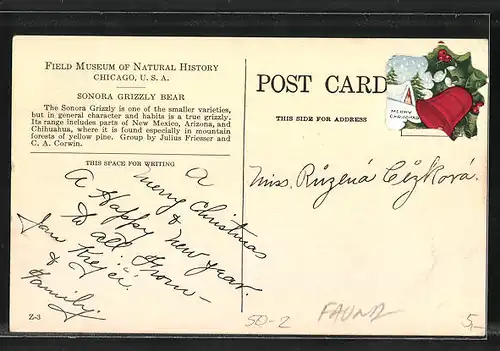 FIELD MUSEUM OF NATURAL HISTORY
CHICAGO, U. S. A.
SONORA GRIZZLY BEAR
The Sonora Grizzly is one of the smaller varieties,
but in general character and habits is a true grizzly.
Its range includes parts of New Mexico, Arizona, and
Chihuahua, where it is found especially in mountain
forests of yellow pine. Group by Julius Friesser and
C. A. Corwin.
THIS SPACE FOR WRITING
A
Merry Christmas
&
A Happy New Year.
To all From—
Jan
&
Family.
Z-3
POST CARD
THIS SIDE FOR ADDRESS
MERRY
CHRISTMAS
Miss. Růzená Čížková.
50-2
FAUNA
5,—